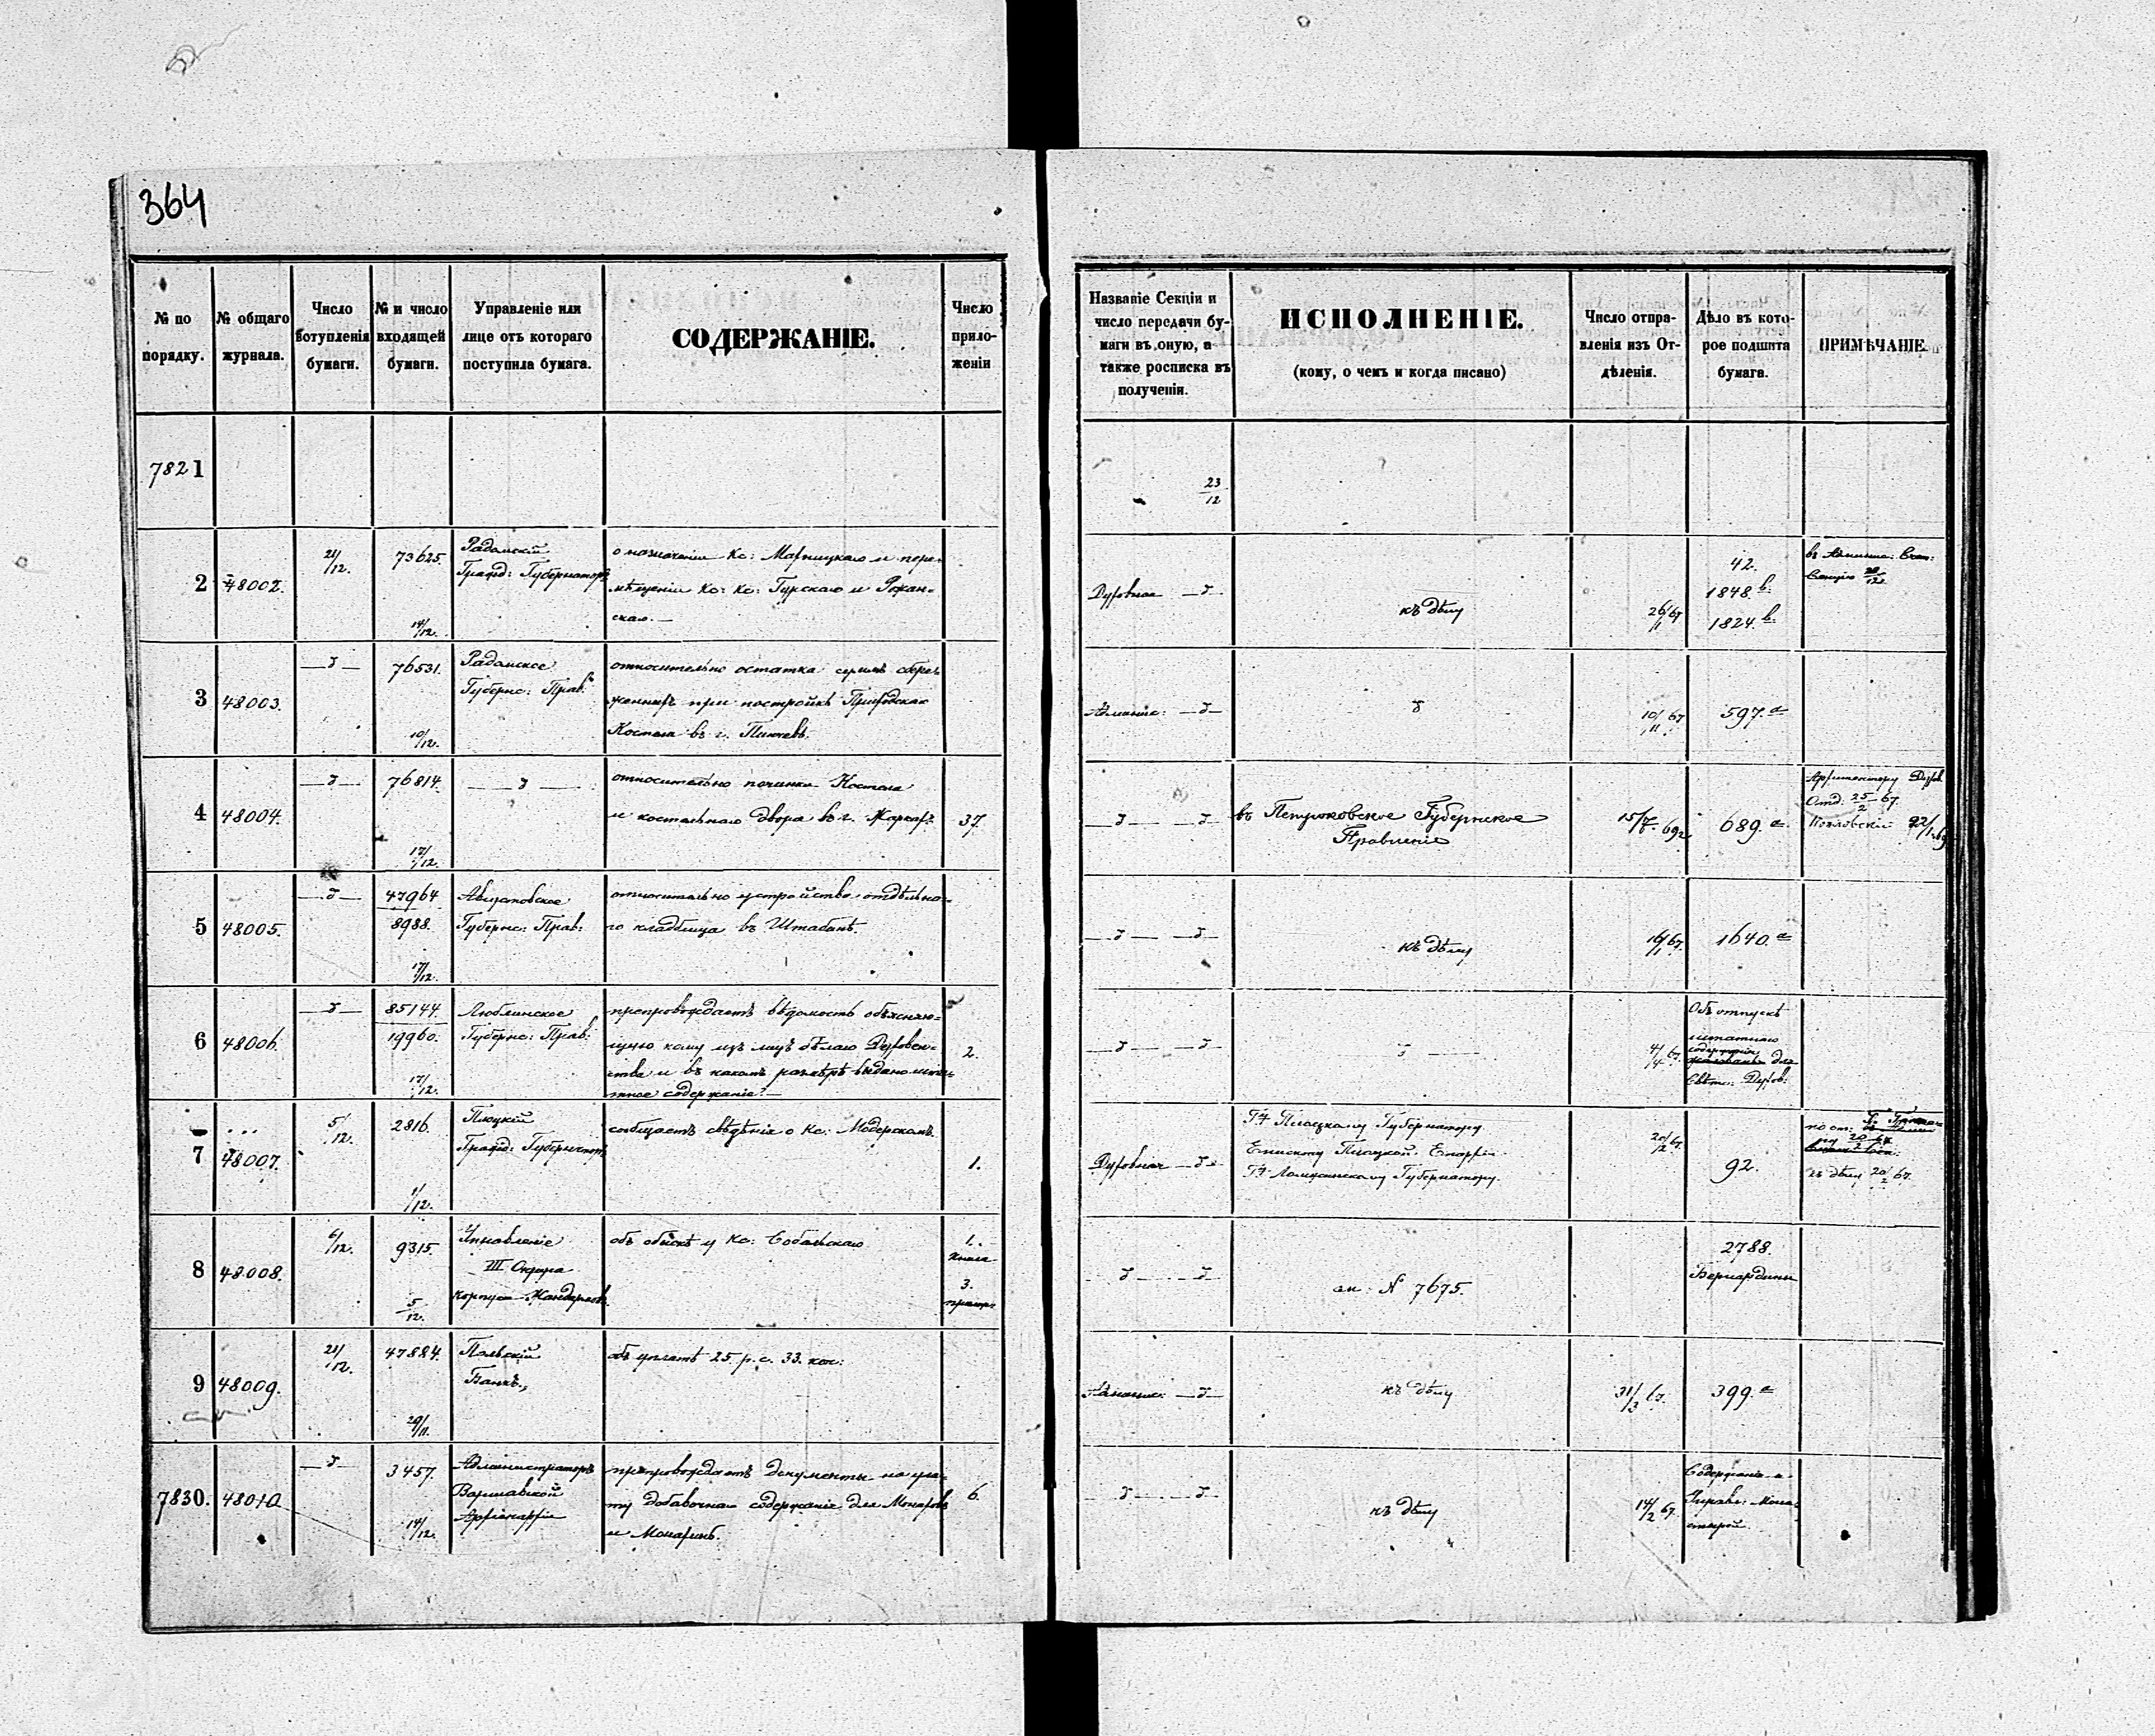 364
№ по порядку.
№ общаго журнала.
Число вступленія бумаги.
№ и число входящей бумаги.
Управленіе или лице отъ котораго поступила бумага.
СОДЕРЖАНІЕ.
Число приложеній
Названіе Секціи и число передачи бумаги въ оную, а также росписка въ полученіи.
ИСПОЛНЕНІЕ.
(кому, о чемъ и когда писано)
Число отправленія изъ Отдѣленія.
Дѣло въ которое подшита бумага.
ПРИМѢЧАНІЕ.
7821
23/12
2
48002.
21/12.
73625.
14/12.
Радомскій
Гражд: Губернаторъ
о назначеніи Кс: Марницкаго и пере-
мѣщеніи Кс: Кс: Гурскаго и Рожан-
скаго.
Духовная
къ дѣлу
26/1 67
42.
1848.
1824.
3
48003.
76531.
19/12.
Радомское
Губернс: Прав:
относительно остатка суммъ сбере-
женныхъ при постройкѣ Приходскаго
Костела въ г. Пинчевѣ.
10/11 67
597.
4
48004.
76814.
17/12.
относительно починки Костела
и костельнаго двора въ г. Жаркахъ
37.
въ Петроковское Губернское
Правленіе
689.
25/2 67.
5
48005.
47964
8988.
17/12.
Августовское
Губернс: Прав:
относительно устройства отдѣльна-
го кладбища въ Штабинѣ.
къ дѣлу
16/1 67.
1640.
6
48006.
85144.
19960.
17/12.
Люблинское
Губернс: Прав:
препровождаетъ вѣдомость объясняю-
щую кому изъ лицъ бѣлаго Духовен-
ства и въ какомъ размѣрѣ выдано штат-
ное содержаніе?
2.
4/4 67.
Объ отпускѣ
штатнаго
содержанія
для
Свѣтс: Духов:
7
48007.
5/12.
2816.
1/12.
Плоцкій
Гражд: Губернаторъ
сообщаетъ свѣдѣнія о Кс. Модерскомъ.
1.
Духовная
Гу Плоцкому Губернатору.
Епископу Плоцкой Епархіи.
Гу Ломжинскому Губернатору.
20/2 67.
92.
къ дѣлу 20/2 67.
8
48008.
6/12.
9315.
5/12.
Управленіе
III Округа
Корпуса Жандармовъ.
объ обыскѣ у Кс: Собальскаго
1.
книга
3.
№ 7675.
2788.
Бернардины
9
48009.
21/12.
47884.
29/11.
Польскій
Банкъ.
объ уплатѣ 25. р. с. 33. коп:
къ дѣлу
31/3 67.
399.
7830.
48010
3457.
14/12.
Администраторъ
Варшавской
Архіепархіи
препровождаетъ документы на упла-
ту добавочнаго содержанія для Монаховъ
и Монахинь.
6.
къ дѣлу
14/2 67.
Содержаніе
Управл: Мона-
стырей